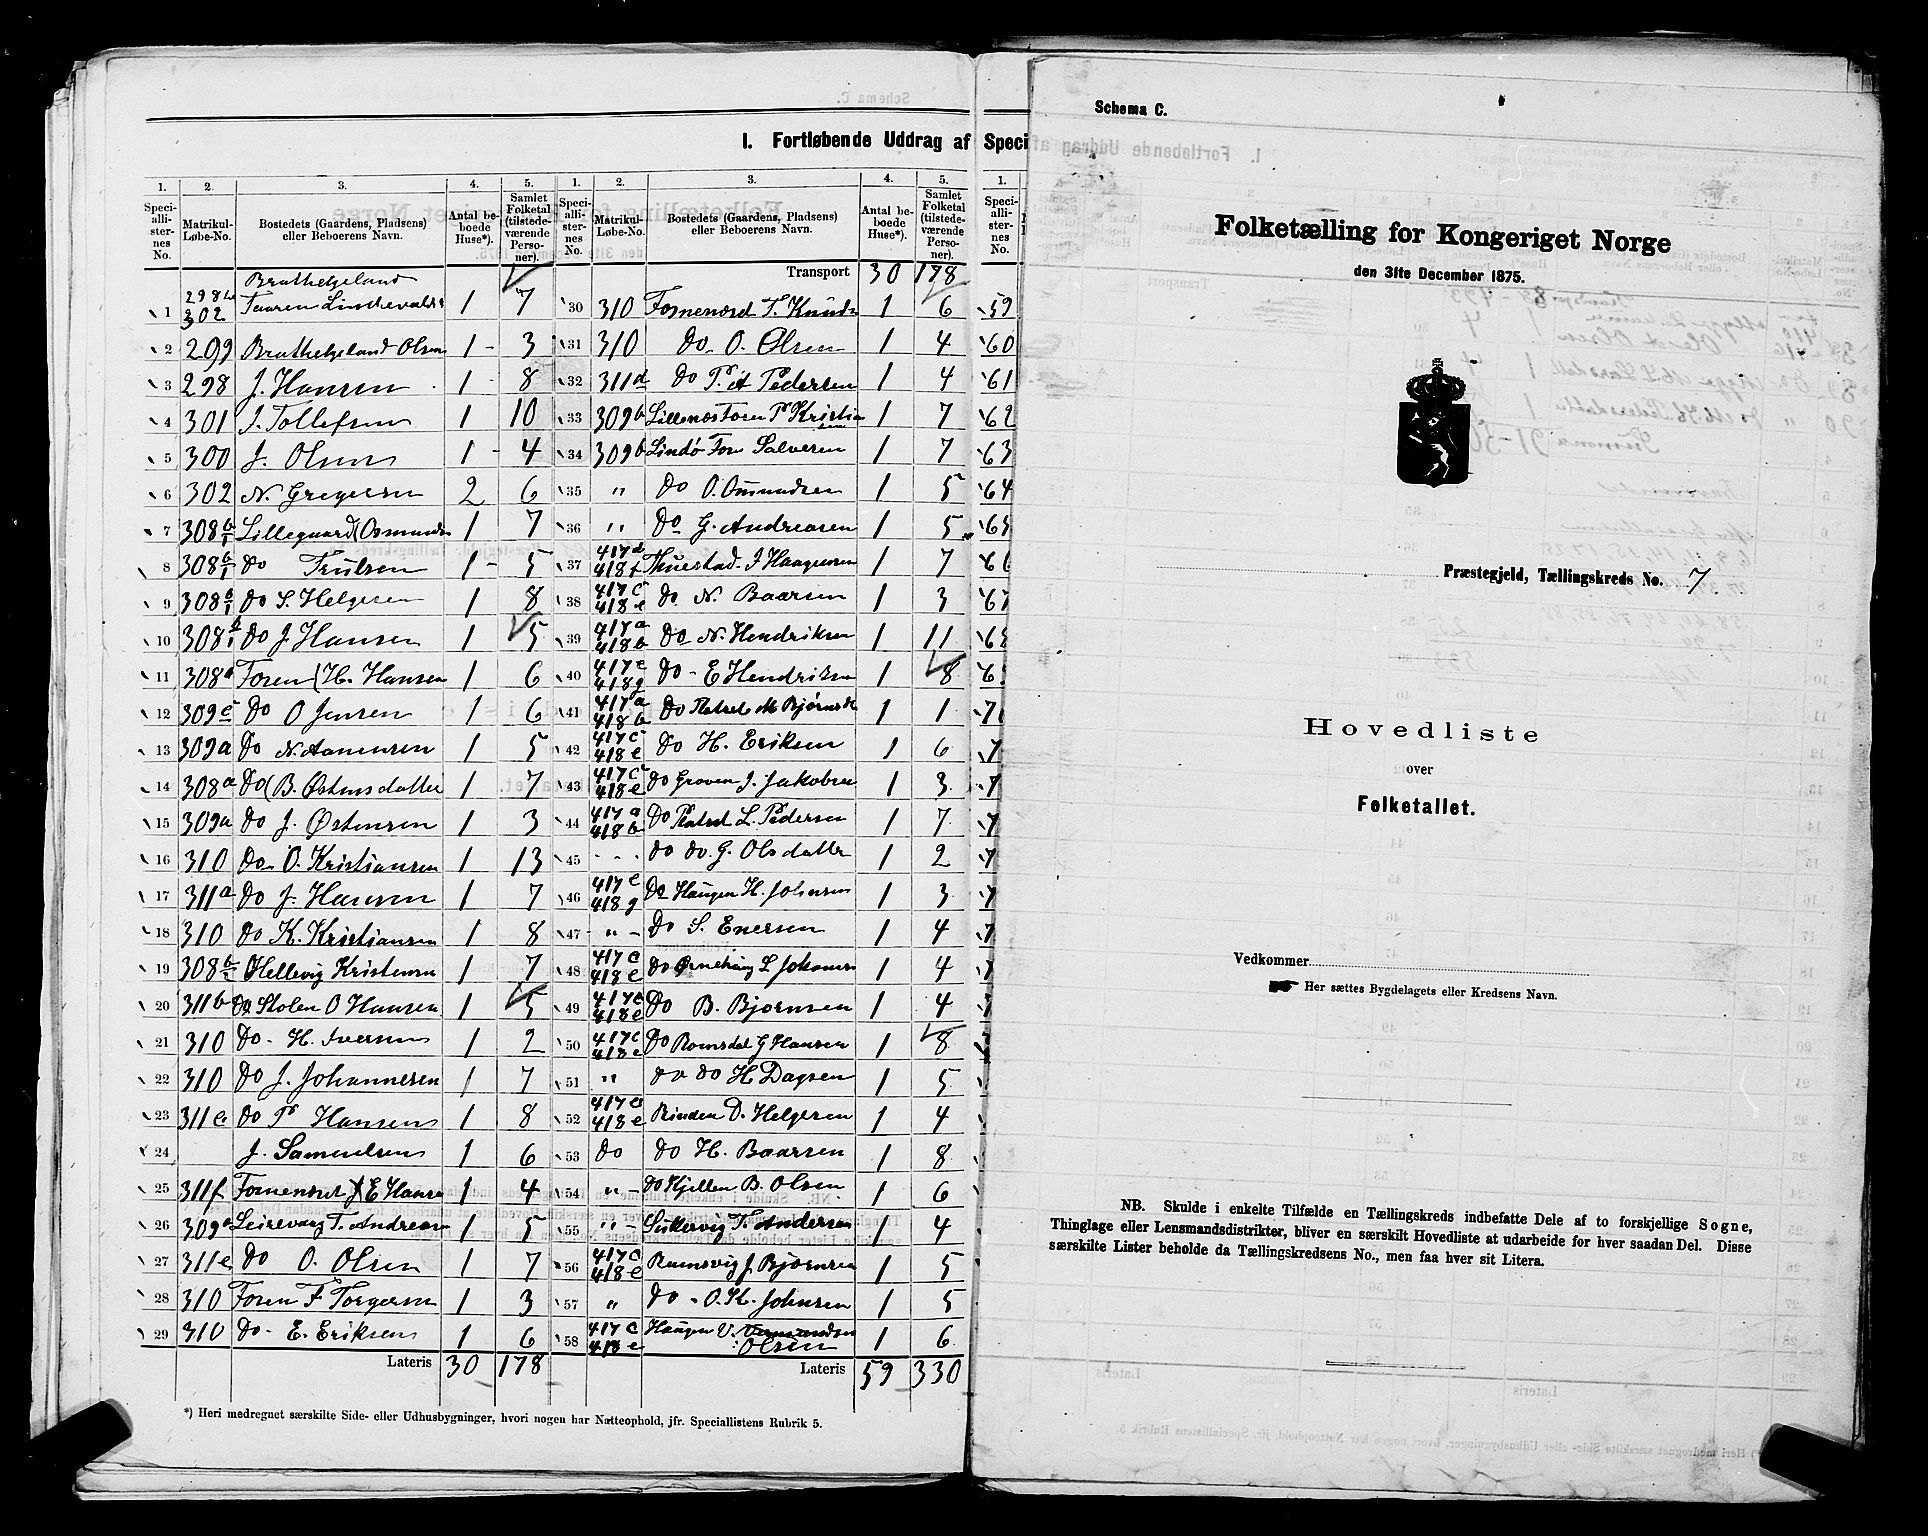 I. Fortløbende Uddrag af Speci
1. 2. 3. 4. 5. 1. 2. 3. 4. 5. 1.
Speciallisternes No. Matrikul-Løbe-No. Bostedets (Gaardens, Pladsens) eller Beboerens Navn. Antal beboede Huse*). Samlet Folketal (tilstedeværende Personer). Speciallisternes No. Matrikul-Løbe-No. Bostedets (Gaardens, Pladsens) eller Beboerens Navn. Antal beboede Huse*). Samlet Folketal (tilstedeværende Personer). Speciallisternes No.
Brathelgeland
1 298b 302 1 7
2 299 Brathelgeland Olsen 1 3
3 298 J. Hansen 1 8
4 301 J. Tollefsen 1 10
5 300 J. Olsen 1 4
6 302 N. Gregersen 2 6
7 308 b/1 Lillegaard (Osmunds 1 7
8 308 b/1 do Trulsen 1 5
9 308 b/1 Do S. Helgesen 1 8
10 308 b/1 Do J Hansen 1 5
11 308a Foren (H. Hansen 1 6
12 309c Do O Jensen 1 6
13 309a Do N. Aanensen 1 5
14 308a Do (B. Østensdatter 1 7
15 309a Do J. Østensen 1 3
16 310 Do O. Kristiansen 1 13
17 311a Do J. Hansen 1 7
18 310 Do K. Kristiansen 1 8
19 308 Hellevig Kristensen 1 7
20 311b Do Stolen O Hansen 1 5
21 310 Do H. Iversen 1 2
22 310 Do J. Johannesen 1 7
23 311c do P Hansen 1 8
24 J. Samuelsen 1 6
25 311f Fornenoret E Hansen 1 4
26 309 Leirevaag T. Andreasen 1 5
27 311e Do O. Olsen 1 7
28 310 Foren F Torgersen 1 3
29 310 Do E. Eriksen 1 6
Lateris 30 178
Transport 30 178
30 310 T. Knuds 1 6
31 310 Do O. Olsen 1 4
32 311d Do Pedersen 1 4
33 309b P Kristian 1 7
34 309b Lindø Salvesen 1 7
35 " Do O. Omundsen 1 5
36 " Do G. Andreasen 1 5
37 417d 418f J Haagensen 1 7
38 417c 418e Do N. Baarsen 1 3
39 417a 418b Do N. Hendriksen 1 11
40 417e 418g Do E Hendriksen 1 8
41 417a 418b Do M Bjørnsd 1 1
42 417c 418e Do H. Eriksen 1 6
43 417c 418e Do Graven J. Jakobsen 1 3
44 417a 418b Do L. Pedersen 1 7
45 do do. G. Olsdatter 1 2
46 417e 418g Do Haugen H. Johnsen 1 3
47 " Do S. Enersen 1 4
48 417c 418e Do L Johannes 1 4
49 417c 418e Do B. Bjørnsen 1 4
50 417c 418e Do Romsdal G Hansen 1 8
51 " do do H Dagsen 1 5
52 417c 418e Rinden D. Helgesen 1 4
53 do do H. Baarsen 1 8
54 " do Kjellen B. Olsen 1 6
55 " T. Andersen 1 4
56 417c 418e Ramsvig J Bjørnsen 1 5
57 " Do O. K. Johnsen 1 5
58 417c 418e Haugen Olsen 1 6
Lateris 59 330
*) Heri medregnet særskilte Side- eller Udhusbygninger, hvori nogen har Natteophold, jfr. Speciallistens Rubrik 5.
59
60
61
62
63
64
65
66
67
Schema C.
Folketælling for Kongeriget Norge
den 31te December 1875.
Præstegjeld, Tællingskreds No. 7.
Hovedliste
over
Folketallet.
Vedkommer
Her sættes Bygdelagets eller Kredsens Navn.
NB. Skulde i enkelte Tilfælde en Tællingskreds indbefatte Dele af to forskjellige Sogne,
Thinglage eller Lensmandsdistrikter, bliver en særskilt Hovedliste at udarbeide for hver saadan Del. Disse
særskilte Lister beholde da Tællingskredsens No., men faa hver sit Litera.